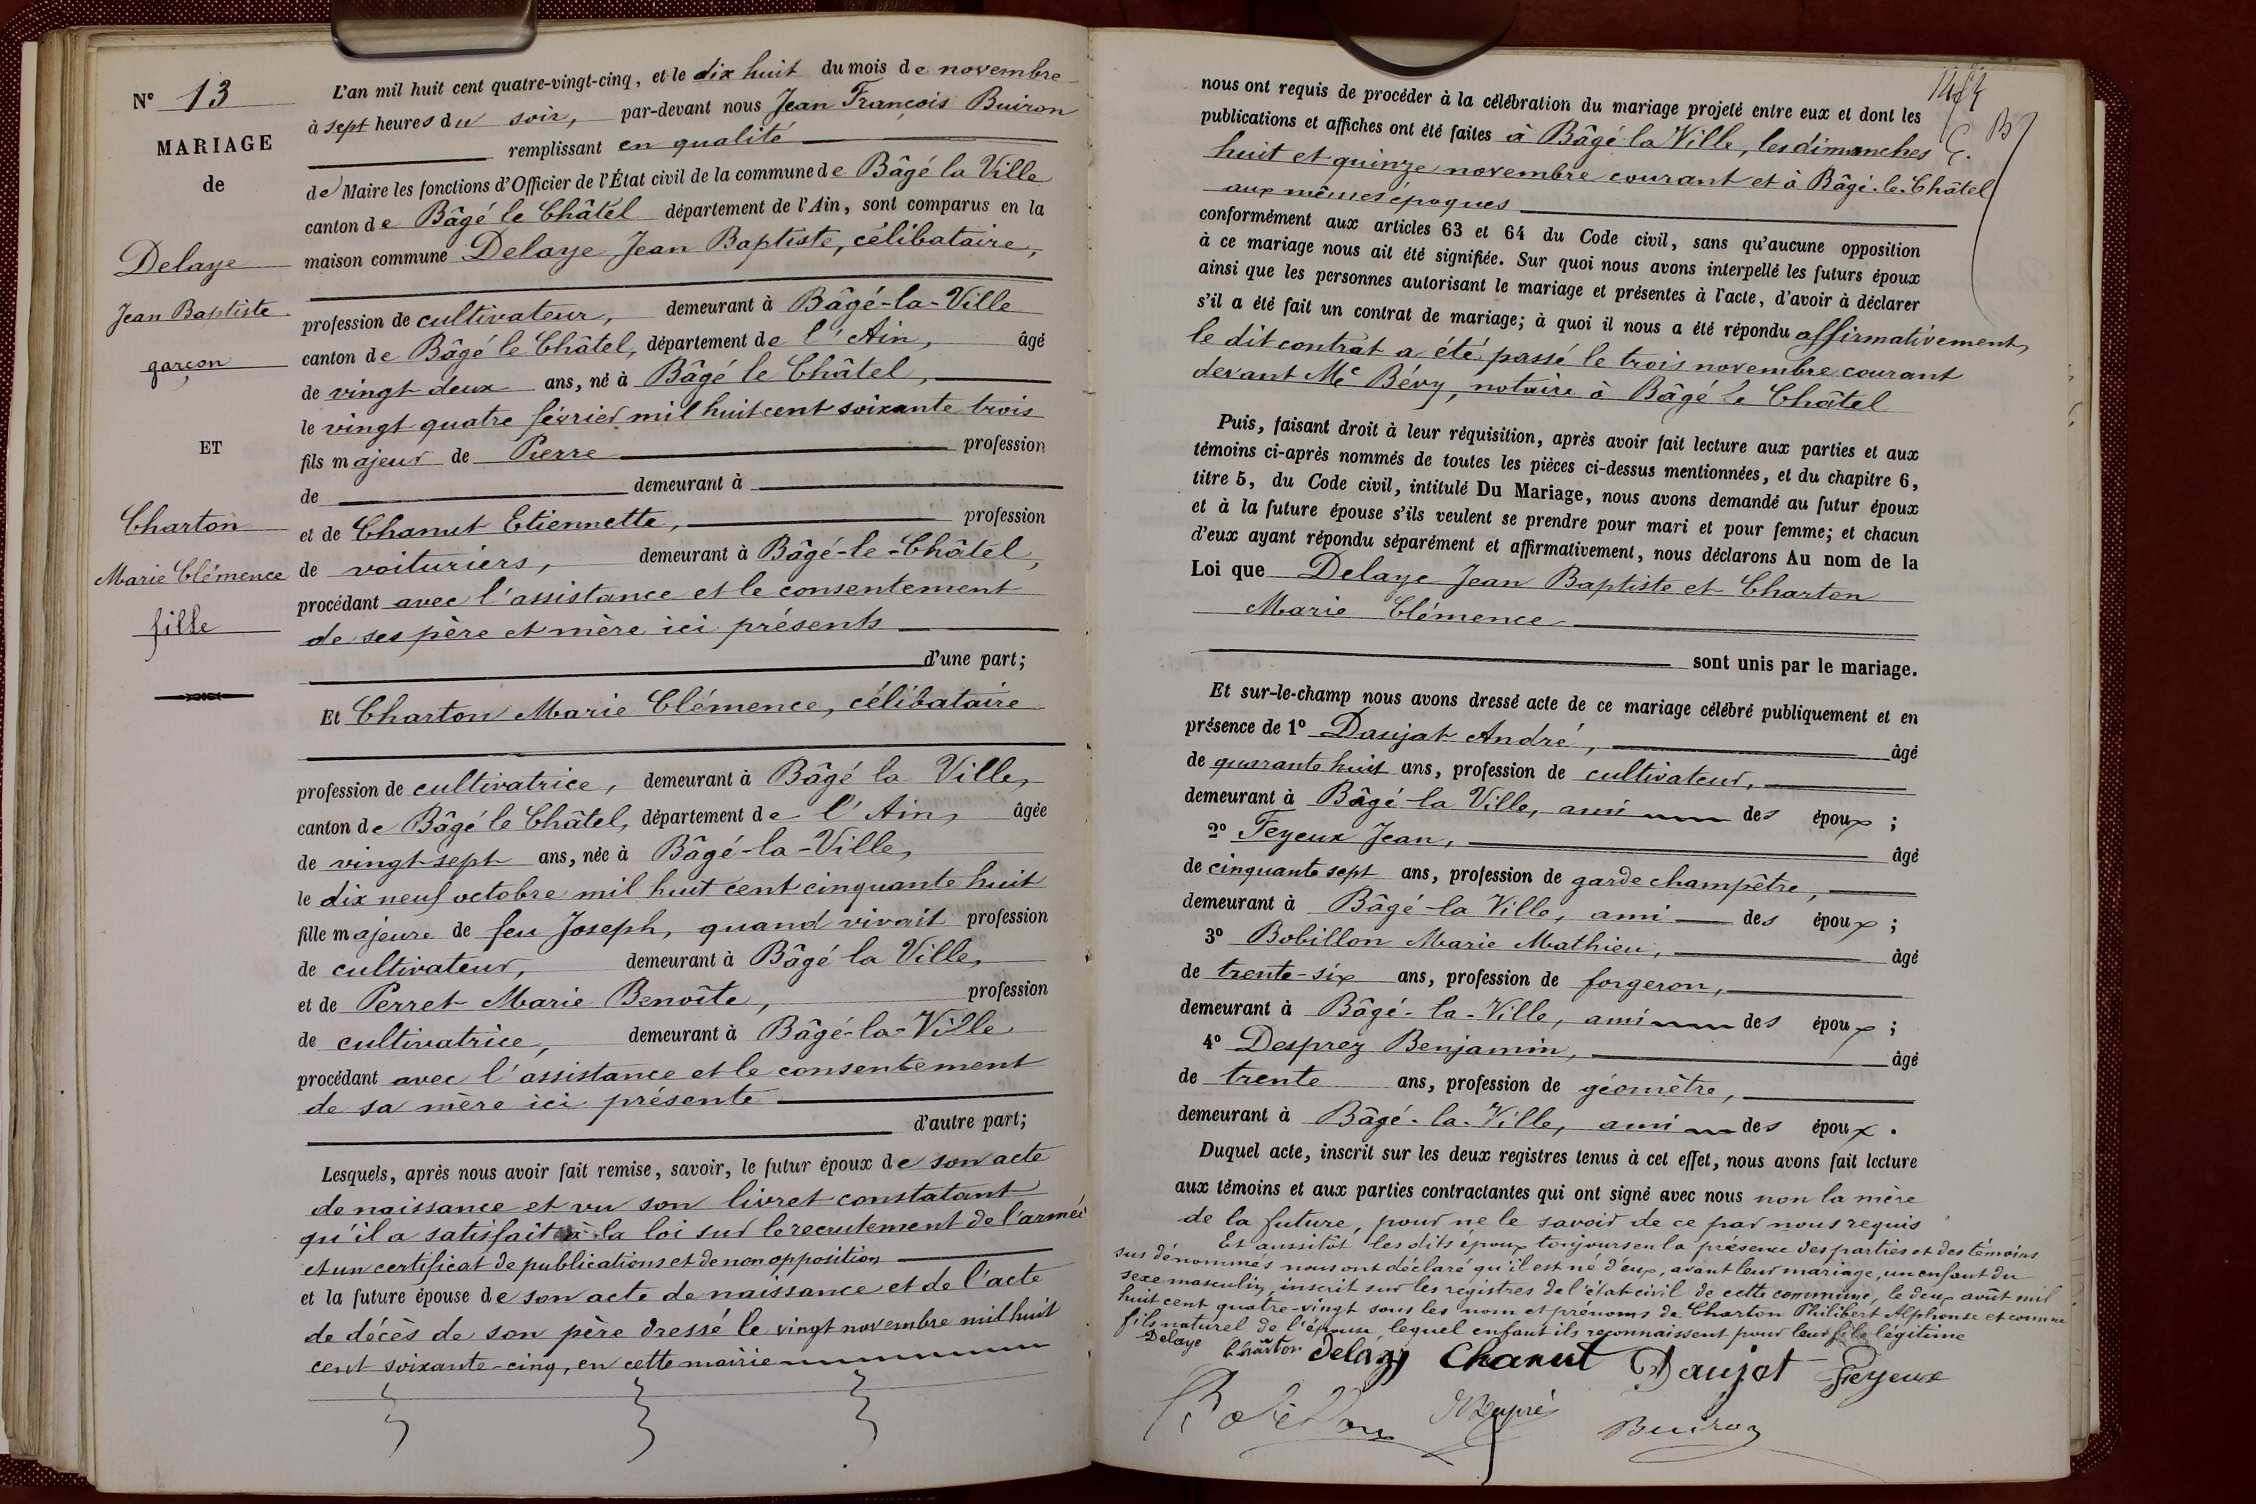 N° 13
MARIAGE
de
Delaye
Jean Baptiste
garçon
ET
Charton
Marie Clémence
fille
L'an mil huit cent quatre-vingt-cinq, et le dix huit du mois de novembre
à sept heures du soir, par-devant nous Jean François Buiron
remplissant en qualité
de Maire les fonctions d'Officier de l'État civil de la commune de Bâgé la Ville
canton de Bâgé le Châtel département de l'Ain, sont comparus en la
maison commune Delaye Jean Baptiste, célibataire,
profession de cultivateur, demeurant à Bâgé-la-Ville
canton de Bâgé le Châtel, département de l'Ain, âgé
de vingt deux ans, né à Bâgé le Châtel,
le vingt quatre février mil huit cent soixante trois
fils majeur de Pierre profession
de demeurant à
et de Chanut Etiennette, profession
de voituriers, demeurant à Bâgé-le-Châtel,
procédant avec l'assistance et le consentement
de ses père et mère ici présents
d'une part;
Et Charton Marie Clémence, célibataire
profession de cultivatrice, demeurant à Bâgé la Ville,
canton de Bâgé le Châtel, département de l'Ain, âgée
de vingt-sept ans, née à Bâgé-la-Ville,
le dix neuf octobre mil huit cent cinquante huit
fille majeure de feu Joseph, quand vivait profession
de cultivateur, demeurant à Bâgé la Ville,
et de Perret Marie Benoîte, profession
de cultivatrice, demeurant à Bâgé-la-Ville
procédant avec l'assistance et le consentement
de sa mère ici présente
d'autre part;
Lesquels, après nous avoir fait remise, savoir, le futur époux de son acte
de naissance et vu son livret constatant
qu'il a satisfait à la loi sur le recrutement de l'armée
et un certificat de publications et de non opposition
et la future épouse de son acte de naissance et de l'acte
de décès de son père dressé le vingt novembre mil huit
cent soixante-cinq, en cette mairie
nous ont requis de procéder à la célébration du mariage projeté entre eux et dont les
publications et affiches ont été faites à Bâgé la Ville, les dimanches
huit et quinze novembre courant et à Bâgé-le-Châtel
aux mêmes époques
conformément aux articles 63 et 64 du Code civil, sans qu'aucune opposition
à ce mariage nous ait été signifiée. Sur quoi nous avons interpellé les futurs époux
ainsi que les personnes autorisant le mariage et présentes à l'acte, d'avoir à déclarer
s'il a été fait un contrat de mariage; à quoi il nous a été répondu affirmativement,
le dit contrat a été passé le trois novembre courant
devant Me Bévy, notaire à Bâgé le Châtel
Puis, faisant droit à leur réquisition, après avoir fait lecture aux parties et aux
témoins ci-après nommés de toutes les pièces ci-dessus mentionnées, et du chapitre 6,
titre 5, du Code civil, intitulé Du Mariage, nous avons demandé au futur époux
et à la future épouse s'ils veulent se prendre pour mari et pour femme; et chacun
d'eux ayant répondu séparément et affirmativement, nous déclarons Au nom de la
Loi que Delaye Jean Baptiste et Charton
Marie Clémence
sont unis par le mariage.
Et sur-le-champ nous avons dressé acte de ce mariage célébré publiquement et en
présence de 1° Daujat André, âgé
de quarante huit ans, profession de cultivateur,
demeurant à Bâgé-la Ville, ami des époux;
2° Feyeux Jean, âgé
de cinquante sept ans, profession de garde champêtre,
demeurant à Bâgé-la Ville, ami des époux;
3° Bobillon Marie Mathieu, âgé
de trente-six ans, profession de forgeron,
demeurant à Bâgé-la-Ville, ami des époux;
4° Desprez Benjamin, âgé
de trente ans, profession de géomètre,
demeurant à Bâgé-la-Ville, ami des époux.
Duquel acte, inscrit sur les deux registres tenus à cet effet, nous avons fait lecture
aux témoins et aux parties contractantes qui ont signé avec nous non la mère
de la future, pour ne le savoir de ce par nous requis
Et aussitôt les dits époux toujours en la présence des parties et des témoins
sus dénommés nous ont déclaré qu'il est né d'eux, avant leur mariage, un enfant du
sexe masculin, inscrit sur les registres de l'état-civil de cette commune, le deux août mil
huit cent quatre-vingt sous les nom et prénoms de Charton Philibert Alphonse et comme
fils naturel de l'épouse, lequel enfant ils reconnaissent pour leur fils légitime
Delaye Charton Delaye Chanut Daujat Feyeux
Bobillon Buiron